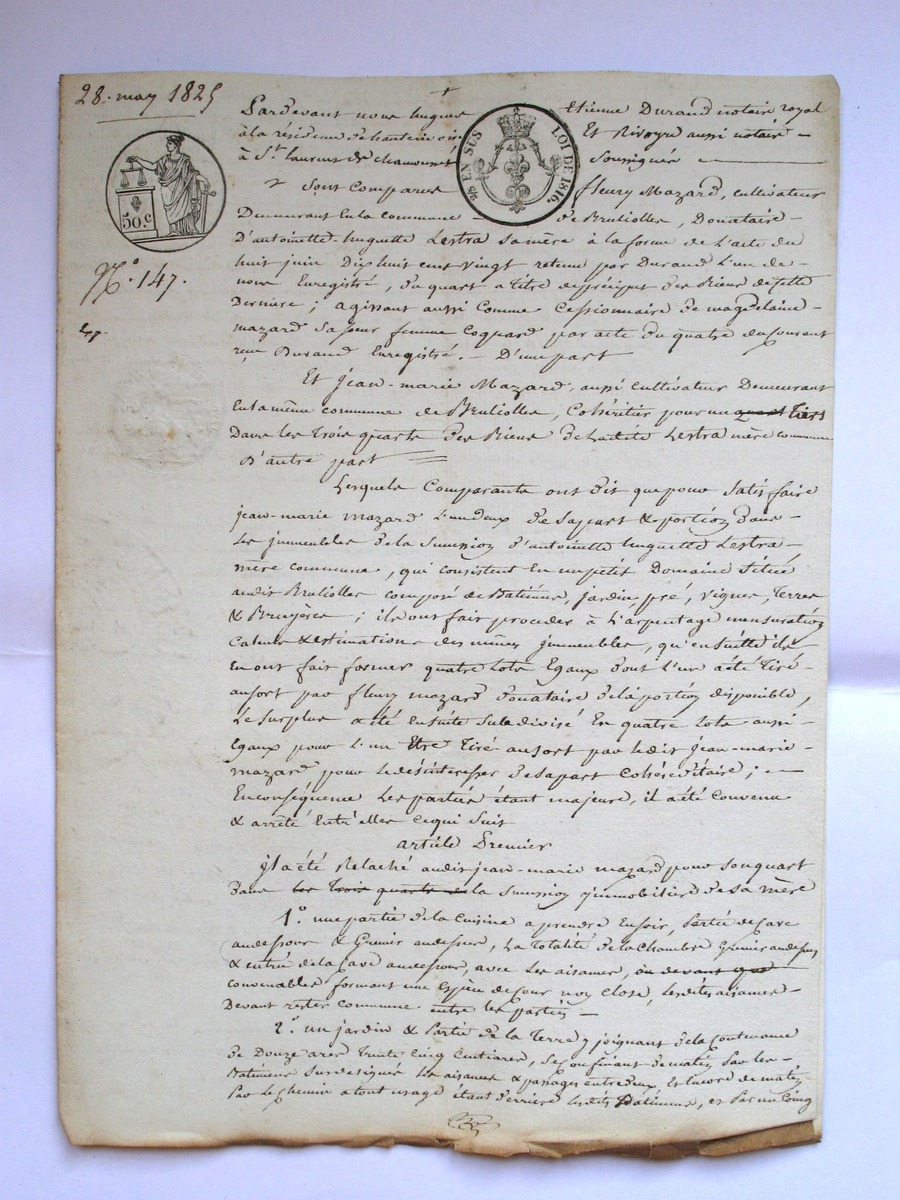 28. may 1825
Pardevant nous hugues Etienne Durand notaire royal
à la résidence de hauterivoire Et Rivoyre aussi notaire
à St. laurent de chamousset Soussignés
50.c
2/10 EN SUS LOI DE 1816.
Sont Comparus fleury Mazard, cultivateur
Demeurant En la commune de Bruliolles, Donataire
D'antoinette huguette Lestra sa mère à la forme de L'acte du
N.o 147.
huit juin Dix huit cent vingt retenu par Durand L'un de
nous Enregistré, du quart à titre de préciput des Biens de cette
Exp.
Dernière ; agissant aussi comme Cessionnaire de magdelaine
mazard sa soeur femme Coquard par acte du quatre du courant
reçu Durand Enregistré. D'une part
Et jean-marie Mazard, aussi cultivateur Demeurant
En la même commune de Bruliolles, Cohéritier pour un quart tiers
Dans les trois quarts des Biens de Ladite Lestra mère commune
D'autre part
Lesquels Comparants ont dit que pour Satisfaire
jean-marie mazard L'un deux de sa part & portion dans
Les immeubles de la Succession d'antoinette huguette Lestra
mère commune, qui consistent En un petit Domaine Situé
audit Bruliolles composé de Batiments, jardin, pré, vignes, terres
& Bruyères ; ils ont fait proceder à L'arpentage mensuration
Calculs & estimations des mêmes jmmeubles, qu'ensuitte ils
En ont fait former quatre Lots Egaux dont L'un a été tiré
au sort par fleury mazard donataire de la portion disponible,
Le Surplus a été ensuite Subdivisé En quatre Lots aussi
Egaux pour L'un Etre tiré au sort par ledit jean-marie
mazard, pour le désinteresser de sa part Cohéréditaire ;
En conséquence Les parties étant majeures, il a été convenu
& arrêté Entr'elles ce qui Suit
article Premier
jl a été Relaché audit jean-marie mazard pour son quart
Dans les trois quarts de la Succession jmmobilière de sa mère
1.o une partie de la Cuisine a prendre En soir, Partie de Cave
au dessous & Grenier au dessus, La Totalité de la chambre Grenier au dessus
& entrée de la Cave au dessous, avec Les aisances, ou devant que
convenables formant une Espèce de Cour non Close, lesdites aisances
Devant rester commune entre les parties
2.o un jardin & Partie de la Terre y joignant de la Contenance
de Douze ares trente Cinq Centiares, Se Confinant de matin Par les
Batiments Susdesignés les aisances & passages entre deux Et Encore de matin
Par le Chemin a tout usage étant derrière lesdits Batiments, et Par un Coing